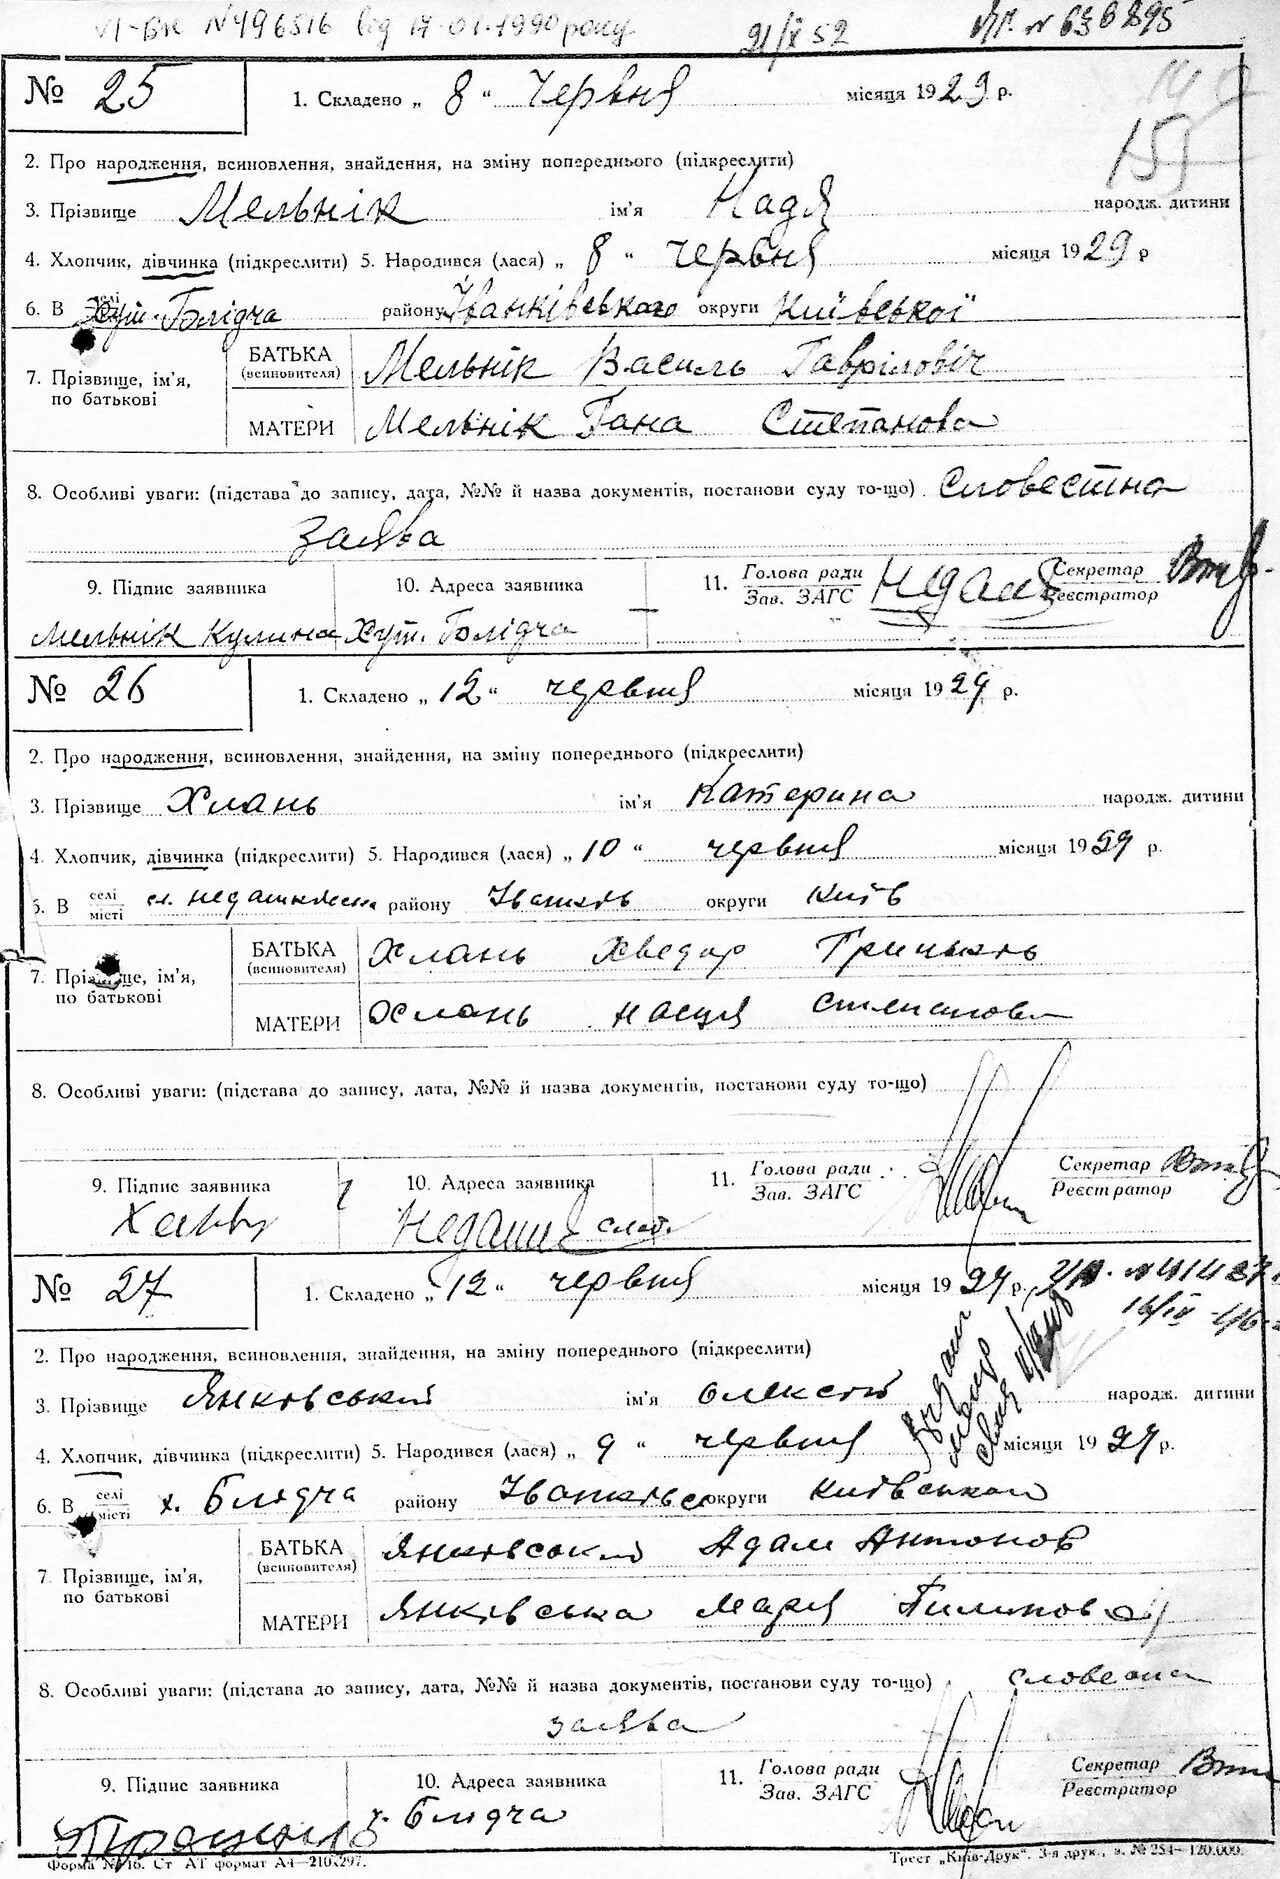 VI-БК N496516 від 17-01-1990 року
21/X 52
N 636895
№ 25
1. Складено „ 8 “ Червня місяця 1929 р.
155
2. Про народження, всиновлення, знайдення, на зміну попереднього (підкреслити)
3. Прізвище Мельнік ім'я Надя народж. дитини
4. Хлопчик, дівчинка (підкреслити) 5. Народився (лася) „ 8 “ червня місяця 1929 р
6. В селі Хут. Блідча району Іванківського округи Київської
7. Прізвище, ім'я, по батькові
БАТЬКА (всиновителя) Мельнік Василь Гаврілович
МАТЕРИ Мельнік Гана Степанова
8. Особливі уваги: (підстава до запису, дата, №№ й назва документів, постанови суду то-що) Словестна
заява
9. Підпис заявника 10. Адреса заявника 11. Голова ради Зав. ЗАГС Секретар Реєстратор
Мельнік Кулина Хут. Блідча
№ 26
1. Складено „ 12 “ червня місяця 1929 р.
2. Про народження, всиновлення, знайдення, на зміну попереднього (підкреслити)
3. Прізвище Хлань ім'я Катерина народж. дитини
4. Хлопчик, дівчинка (підкреслити) 5. Народився (лася) „ 10 “ червня місяця 1929 р.
6. В селі місті району Іванків округи Київ
7. Прізвище, ім'я, по батькові
БАТЬКА (всиновителя) Хлань Хведор Грицьків
МАТЕРИ Хлань Настя Степанова
8. Особливі уваги: (підстава до запису, дата, №№ й назва документів, постанови суду то-що)
9. Підпис заявника 10. Адреса заявника 11. Голова ради Зав. ЗАГС Секретар Реєстратор
№ 27
1. Складено „ 12 “ червня місяця 1929 р.
2. Про народження, всиновлення, знайдення, на зміну попереднього (підкреслити)
3. Прізвище Янковський ім'я Олексій народж. дитини
4. Хлопчик, дівчинка (підкреслити) 5. Народився (лася) „ 9 “ червня місяця 1929 р.
6. В селі місті х. Блидча району округи Київської
7. Прізвище, ім'я, по батькові
БАТЬКА (всиновителя) Янковський Адам Антонов
МАТЕРИ Янківська Марія
8. Особливі уваги: (підстава до запису, дата, №№ й назва документів, постанови суду то-що) словесна
заява
9. Підпис заявника 10. Адреса заявника 11. Голова ради Зав. ЗАГС Секретар Реєстратор
х. Блидча
Форма № 16. Ст АТ формат А4—210х297.
Трест „Київ-Друк“. 3-я друк., з. № 254—120.000.